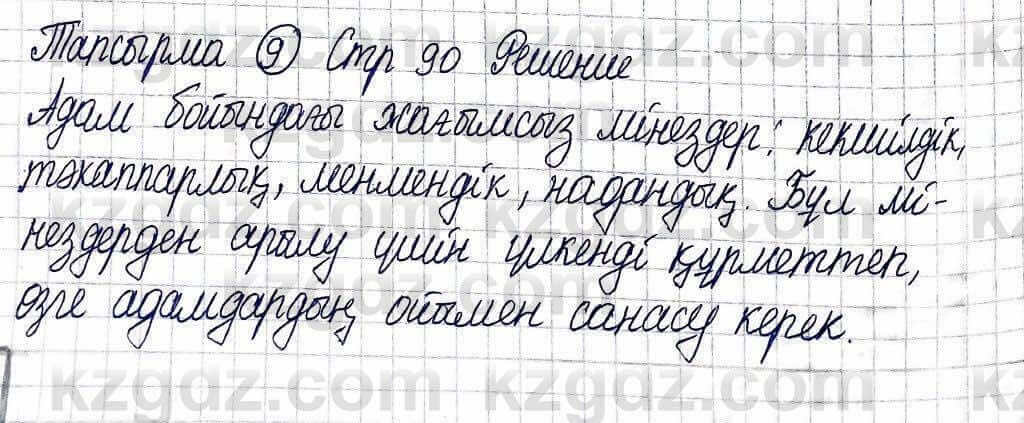 Тапсырма 9 Стр 90 Решение
Адам бойындағы жағымсыз мінездер: кекшілдік,
тәкаппарлық, менмендік, надандық. Бұл мі-
нездерден арылу үшін үлкенді құрметтеп,
өзге адамдардың ойымен санасу керек.
kzgdz.com